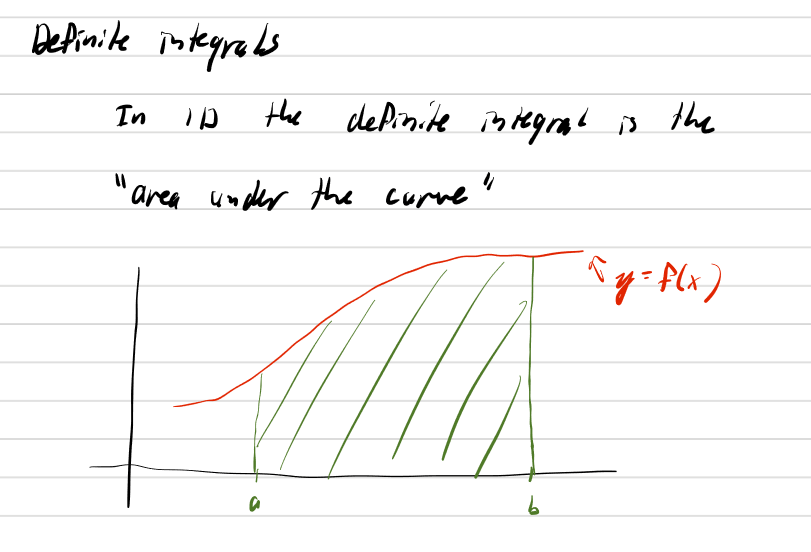 Definite integrals
In 1D the definite integral is the
"area under the curve"
y = f(x)
a
b